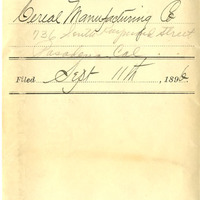 Cereal Manufacturing Co
736 South Raymond Street
Pasadena Cal.
Filed Sept 11th, 1896